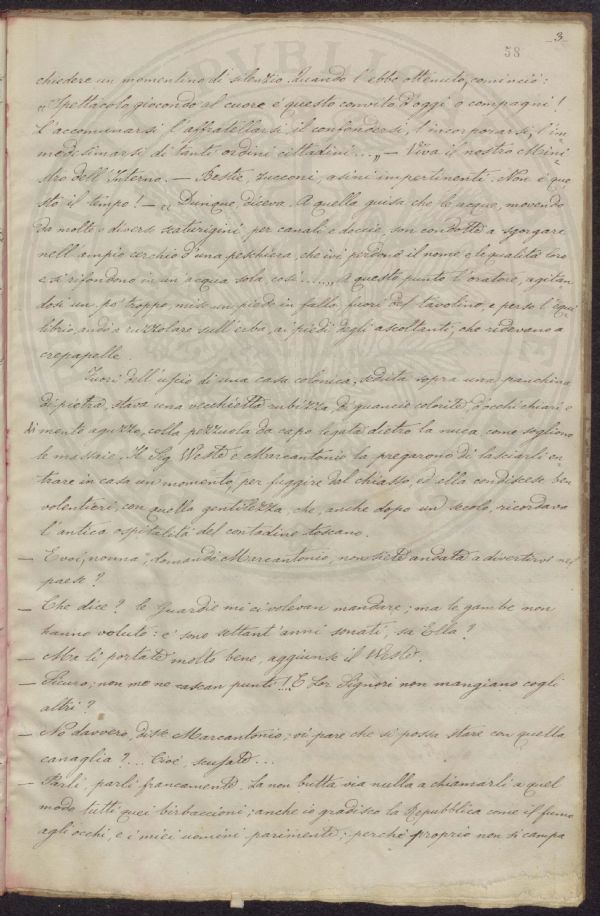 3
58
chiedere un momentino di silenzio. Quando l'ebbe ottenuto, cominciò:
"Spettacolo giocondo al cuore è questo convito d'oggi o compagni!
l'accomunarsi, l'affratellarsi, il confondersi, l'incorporarsi, l'im=
medesimarsi di tanti ordini cittadini...„ — Viva il nostro Mini=
stro dell'Interno. — Bestie, zucconi, asini impertinenti. Non è que=
sto il tempo! — "Dunque, dicevo. A quella guisa che le acque, movendo
da molte e diverse scaturigini, per canali e doccie, son condotte a sgorgare
nell'ampio cerchio d'una peschiera, che ivi perdono il nome e le qualità loro
e si rifondono in un'acqua sola, così....„ A questo punto l'oratore, agitan=
dosi un po' troppo, mise un piede in fallo, fuori del tavolino, e perso l'equi=
librio, andò a ruzzolare sull'erba, ai piedi degli ascoltanti, che ridevano a
crepapelle.
Fuori dell'uscio di una casa colonica, seduta sopra una panchina
di pietra, stava una vecchietta rubizza, di guancie colorite, d'occhi chiari, e
di mento aguzzo, colla pezzuola da capo legata dietro la nuca, come sogliono
le massaie. Il Sig. Weste e Marcantonio la pregarono di lasciarli en=
trare in casa un momento, per fuggire dal chiasso, ed ella condiscese ben
volentieri, con quella gentilezza, che, anche dopo un secolo, ricordava
l'antica ospitalità del contadino toscano.
— E voi, nonna, domandò Marcantonio, non siete andata a divertirvi nel
paese?
— Che dice? le Guardie mi ci volevan mandare; ma le gambe non
hanno voluto: e' sono settant'anni sonati, sa Ella?
— Ma li portate molto bene, aggiunse il Weste.
— Sicuro; non me ne cascan punti!! E Lor Signori non mangiano cogli
altri?
— No davvero, disse Marcantonio; vi pare che si possa stare con quella
canaglia?... Cioè, scusate...
— Parli, parli francamente. La non butta via nulla a chiamarli a quel
modo tutti quei birbaccioni; anche io gradisco la Repubblica come il fumo
agli occhi, e i miei uomini parimente; perché proprio non si campa